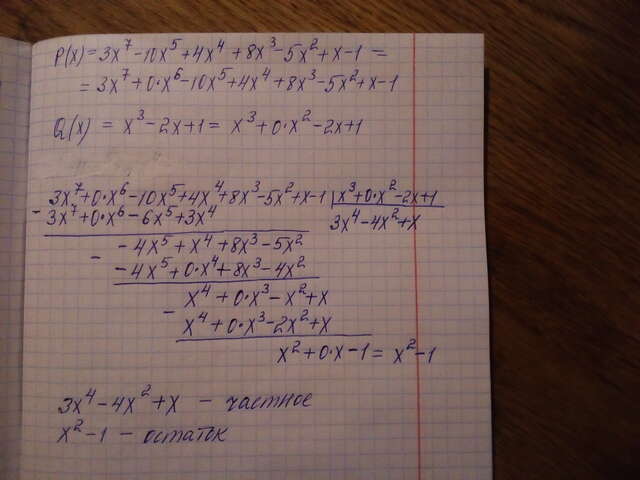 P(x) = 3x⁷ - 10x⁵ + 4x⁴ + 8x³ - 5x² + x - 1 =
= 3x⁷ + 0·x⁶ - 10x⁵ + 4x⁴ + 8x³ - 5x² + x - 1
Q(x) = x³ - 2x + 1 = x³ + 0·x² - 2x + 1
3x⁷ + 0·x⁶ - 10x⁵ + 4x⁴ + 8x³ - 5x² + x - 1 | x³ + 0·x² - 2x + 1
- 3x⁷ + 0·x⁶ - 6x⁵ + 3x⁴ 3x⁴ - 4x² + x
- 4x⁵ + x⁴ + 8x³ - 5x²
- - 4x⁵ + 0·x⁴ + 8x³ - 4x²
x⁴ + 0·x³ - x² + x
- x⁴ + 0·x³ - 2x² + x
x² + 0·x - 1 = x² - 1
3x⁴ - 4x² + x - частное
x² - 1 - остаток